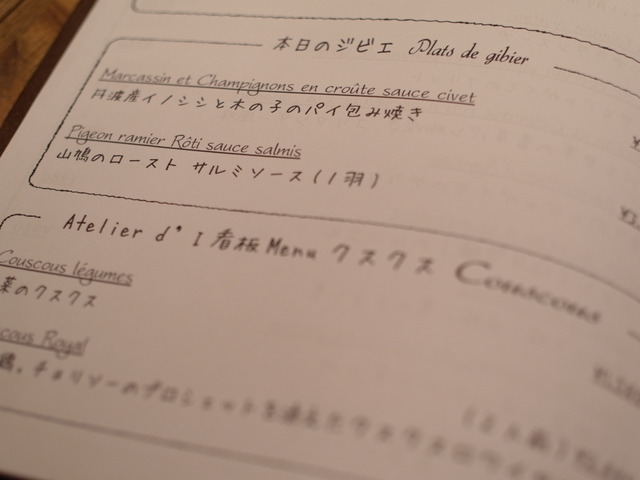 本日のジビエ Plats de gibier
Marcassin et Champignons en croûte sauce civet
丹波産イノシシと木の子のパイ包み焼き
Pigeon ramier Rôti sauce salmis
山鳩のロースト サルミソース(1羽)
Atelier d' I 看板Menu クスクス Couscous
Couscous légumes
菜のクスクス
cous Royal
鶏、チョリソーのブロシェットを添えた